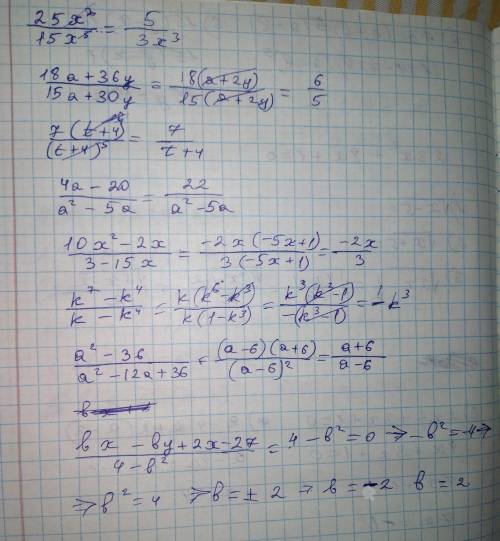 25x²/15x⁵ = 5/3x³
18a+36y/15a+30y = 18(a+2y)/15(a+2y) = 6/5
7(t+4)⁴/(t+4)⁵ = 7/t+4
4a-20/a²-5a = 22/a²-5a
10x²-2x/3-15x = -2x(-5x+1)/3(-5x+1) = -2x/3
k⁷-k⁴/k-k⁴ = k(k⁶-k³)/k(1-k³) = k³(k³-1)/-(k³-1) = -k³
a²-36/a²-12a+36 = (a-6)(a+6)/(a-6)² = a+6/a-6
bx-by+2x-27/4-b² = 4-b²=0 => -b²=-4 =>
=> b²=4 => b=±2 → b=-2 b=2